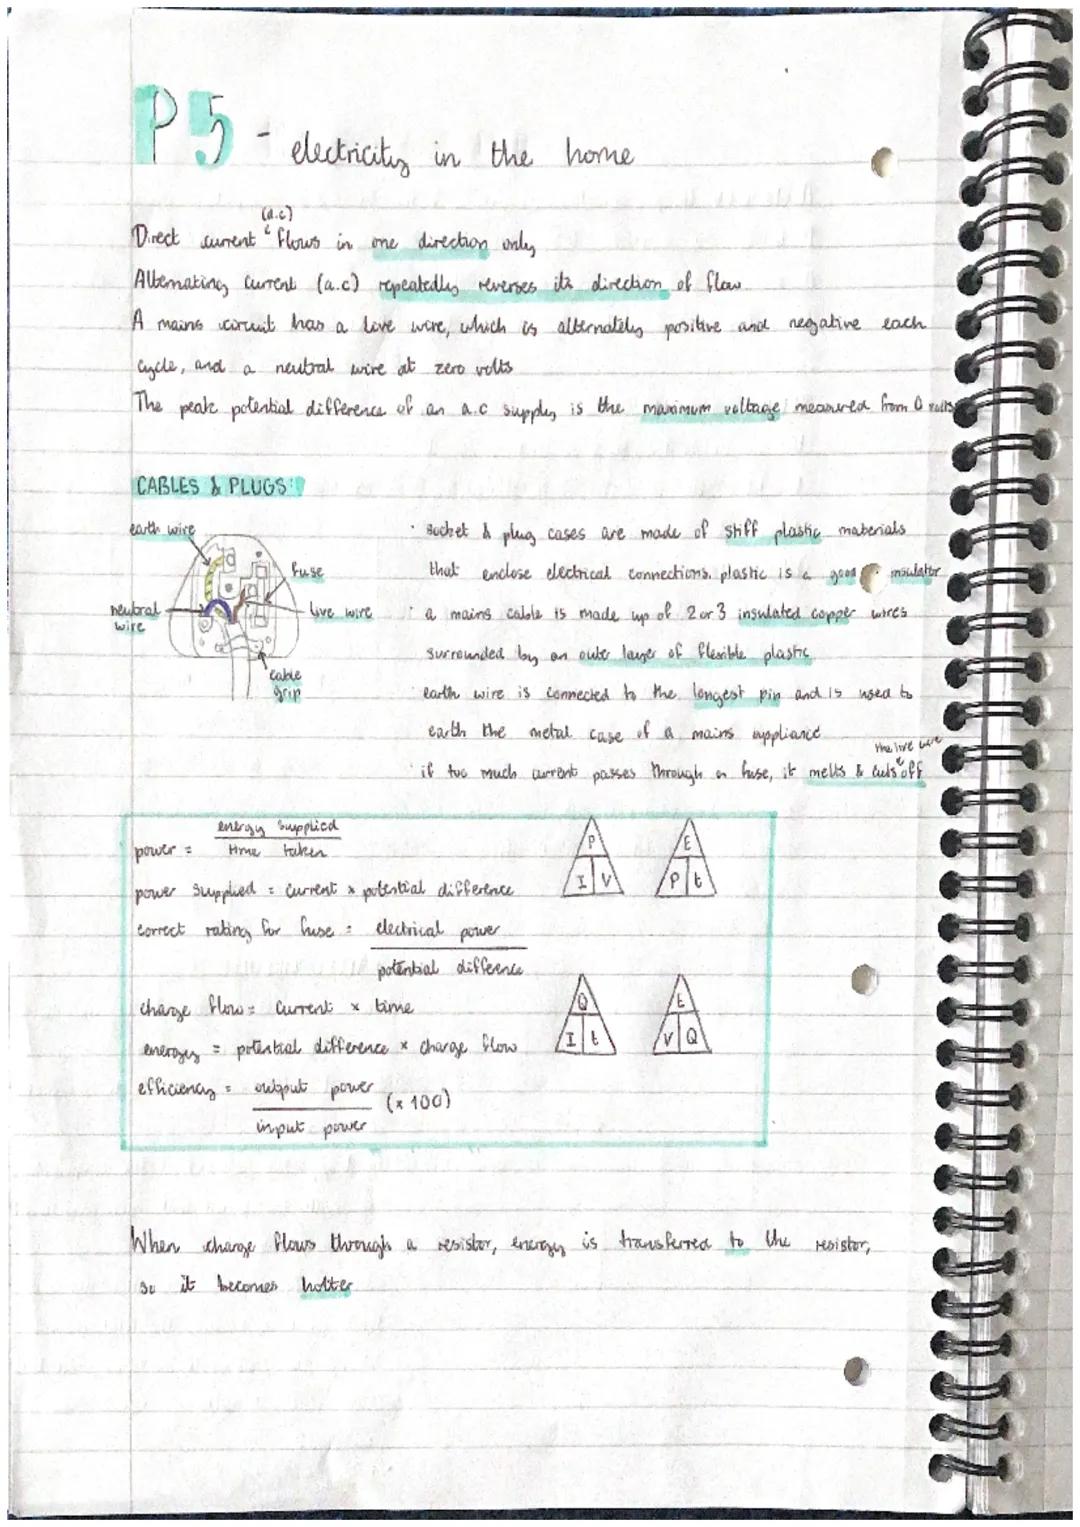 P5 - electricity in the home
(d.c)
Direct current flows in one direction only
Alternating current (a.c) repeatedly reverses its direction of flow
A mains circuit has a live wire, which is alternately positive and negative each
cycle, and a neutral wire at zero volts
The peak potential difference of an a.c supply is the maximum voltage measured from 0 volts
CABLES & PLUGS:
earth wire
fuse
neutral
wire
live wire
cable
grip
· socket & plug cases are made of stiff plastic materials
that enclose electrical connections. plastic is a good insulator
· a mains cable is made up of 2 or 3 insulated copper wires
surrounded by an outer layer of flexible plastic
· earth wire is connected to the longest pin and is used to
earth the metal case of a mains appliance
the live wire
· if too much current passes through a fuse, it melts & cuts off
power = energy supplied
time taken
P
I V
E
P t
power supplied = current x potential difference
correct rating for fuse = electrical power
potential difference
charge flow = current x time
Q
I t
E
V Q
energy = potential difference x charge flow
efficiency = output power (x 100)
input power
When charge flows through a resistor, energy is transferred to the resistor,
so it becomes hotter